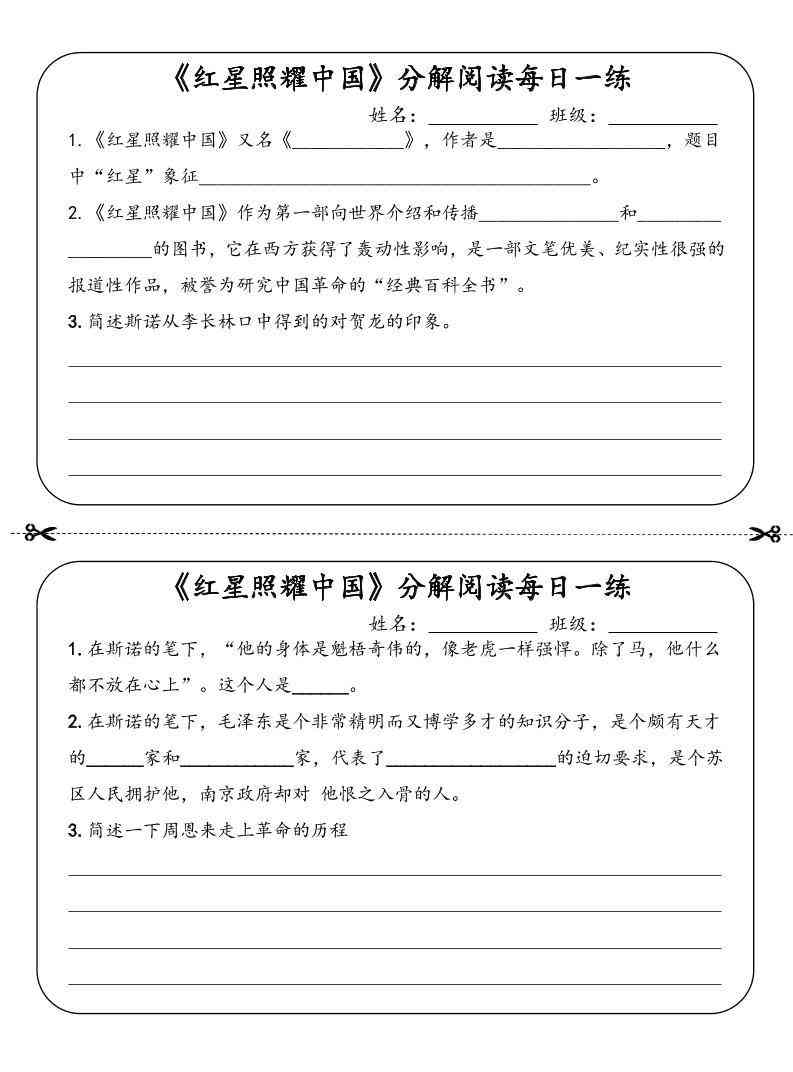 《红星照耀中国》分解阅读每日一练
姓名：__________ 班级：__________
1.《红星照耀中国》又名《____________》，作者是__________________，题目
中“红星”象征__________________________________________。
2.《红星照耀中国》作为第一部向世界介绍和传播_______________和_________
_________的图书，它在西方获得了轰动性影响，是一部文笔优美、纪实性很强的
报道性作品，被誉为研究中国革命的“经典百科全书”。
3.简述斯诺从李长林口中得到的对贺龙的印象。
《红星照耀中国》分解阅读每日一练
姓名：__________ 班级：__________
1.在斯诺的笔下，“他的身体是魁梧奇伟的，像老虎一样强悍。除了马，他什么
都不放在心上”。这个人是______。
2.在斯诺的笔下，毛泽东是个非常精明而又博学多才的知识分子，是个颇有天才
的______家和____________家，代表了__________________的迫切要求，是个苏
区人民拥护他，南京政府却对 他恨之入骨的人。
3.简述一下周恩来走上革命的历程